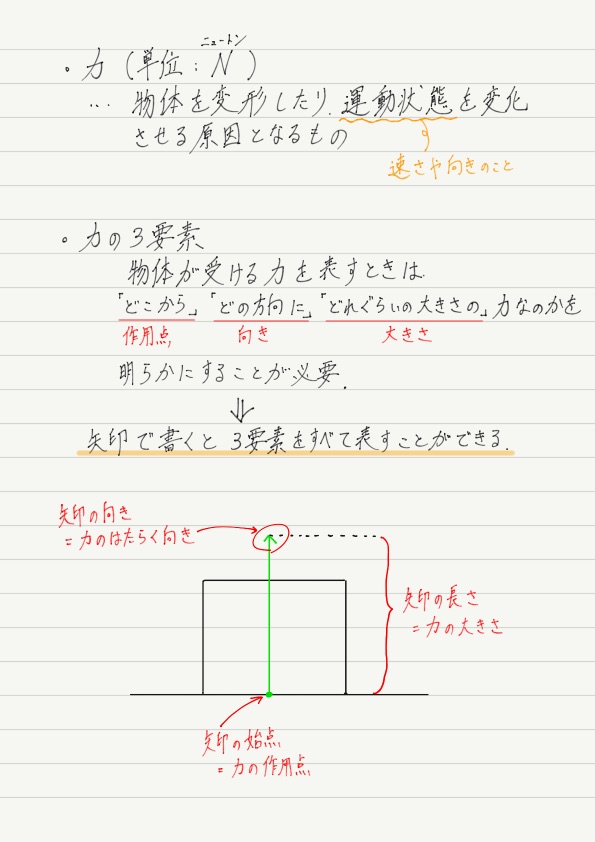 ニュートン
・力 (単位 : N)
… 物体を変形したり、運動状態を変化
させる原因となるもの
速さや向きのこと
・力の3要素
物体が受ける力を表すときは、
「どこから」「どの方向に」「どれぐらいの大きさの」力なのかを
作用点 向き 大きさ
明らかにすることが必要.
⇓
矢印で書くと 3要素をすべて表すことができる.
矢印の向き
= 力のはたらく向き
矢印の長さ
= 力の大きさ
矢印の始点
= 力の作用点